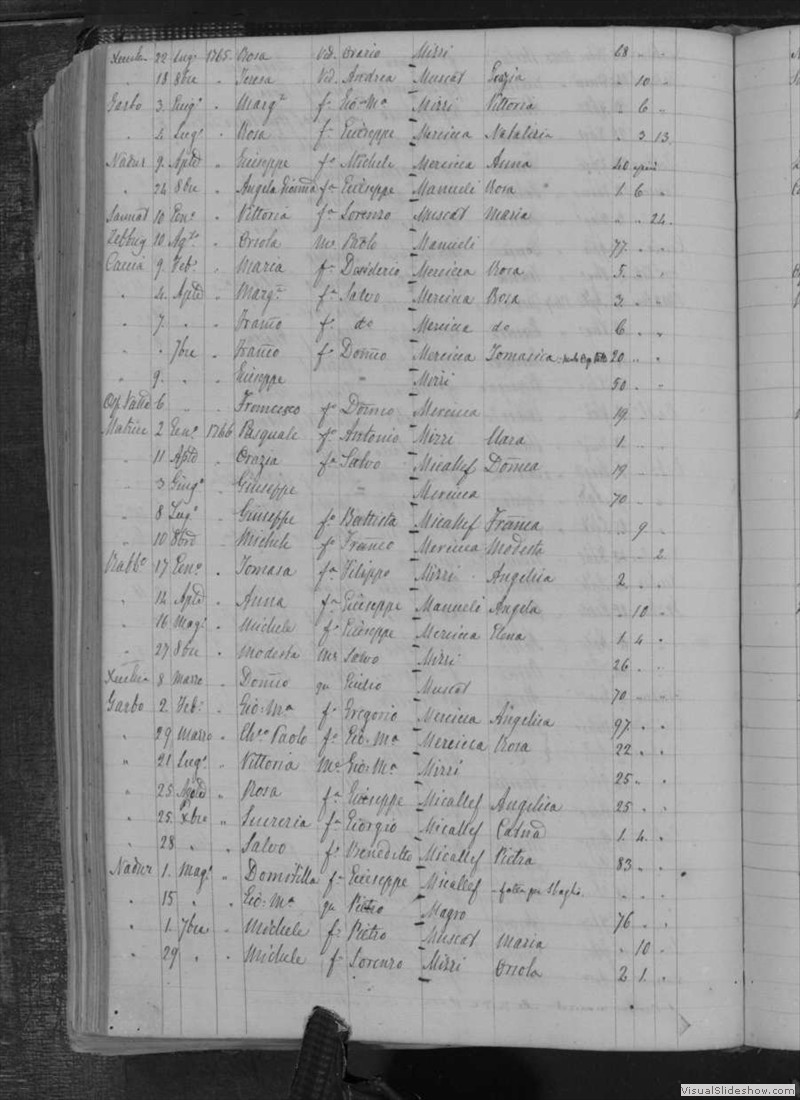 Xeuchia 22 Lugo 1765 Rosa Vid. Orazio Mizzi 68 " "
" 18 8bre " Teresa Vid. Andrea Muscat Grazia " 10 "
Garbo 3 " Marga fa Gio: Ma Mizzi Vittoria " 6 "
" 4 Lugo " Rosa fa Giuseppe Mercieca Natalizia " 3 13
Nadur 9 Aple " Giuseppe fo Michele Mercieca Anna 40
" 24 8bre " Angela Gioanna fa Giuseppe Manueli Rosa 1 6 "
Sannat 10 Geno " Vittoria fa Lorenzo Muscat Maria " " 24
Zebbug 10 Agto " Orsola Me Paolo Manueli 77 " "
Caccia 9 Febo " Maria fa Desiderio Mercieca Rosa 5 " "
" 4 Aple " Marga fa Salvo Mercieca Rosa 3 " "
" 7 " " Franco fo do Mercieca do 6 " "
" " 7bre " Franco fo Domco Mercieca Tomasica 20 " "
" 9 " " Giuseppe " Mizzi 50 " "
6 " " Francesco fo Domco Mercieca 19 " "
Matrice 2 Geno 1766 Pasquale fo Antonio Mizzi Clara 1 " "
" 11 Aple " Grazia fa Salvo Micallef Domca 19 " "
" 3 Giugo " Giuseppe " Mercieca 70 " "
" 8 Lugo " Giuseppe fo Battista Micallef Franca " 9 "
" 10 8bre " Michele fo Franco Mercieca Modesta " " 2
Rabbo 17 Geno " Tomasa fa Filippo Mizzi Angelica 2 " "
" 14 Aple " Anna fa Giuseppe Manueli Angela " 10 "
" 16 Mago " Michele fo Giuseppe Mercieca Elena 1 4 "
" 27 8bre " Modesta Me Salvo Mizzi 26 " "
Xeuchia 8 Marzo " Domco qm Giulio Muscat 70 " "
Garbo 2 Febo " Gio: Ma fo Gregorio Mercieca Angelica 97 " "
" 29 Marzo " Chco Paolo fo Gio: Ma Mercieca Rosa 22 " "
" 21 Lugo " Vittoria Me Gio: Ma Mizzi 25 " "
" 25 " Rosa fa Giuseppe Micallef Angelica 25 " "
" 25 Xbre " Lucrezia fa Giorgio Micallef Catna 1 4 "
" 28 " " Salvo fo Benedetto Micallef Pietra 83 " "
Nadur 1 Mago " Domitilla fa Giuseppe Micallef " " "
" 15 " " Gio: Ma qm Pietro Magro 76 " "
" 1 7bre " Michele fo Pietro Muscat Maria " 10 "
" 29 " " Michele fo Lorenzo Mizzi Orsola 2 1 "
VisualSlideshow.com